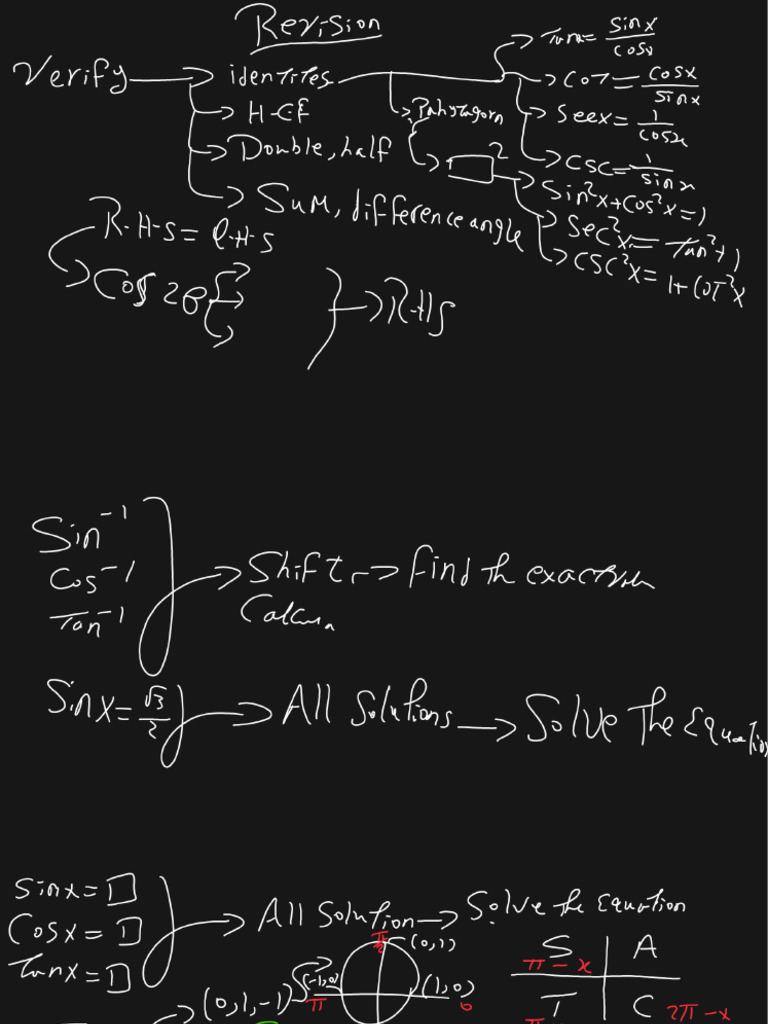 Revision
Verify → identites
Tanx = sinx/cosx
Cot = cosx/sinx
→ H.C.F
→ Pahytagorn
Secx = 1/cosx
→ Double, half
→ □²
CSC = 1/sinx
→ Sum, difference angle
Sin²x + Cos²x = 1
Sec²x = Tan² + 1
CSC²x = 1 + COT²x
R.H.S = L.H.S
Cos 2θ
→ R.H.S
Sin⁻¹
Cos⁻¹
Tan⁻¹
→ Shift → Find th exact
Sinx = √3/2 → All Solutions → Solve The Equation
Sinx = □
Cosx = □
Tanx = □
→ All Solution → Solve the Equation
π/2 (0,1)
(-1,0) π
(1,0) 0
→ (0,1,-1)
S A
π - x
T C
π
2π - x